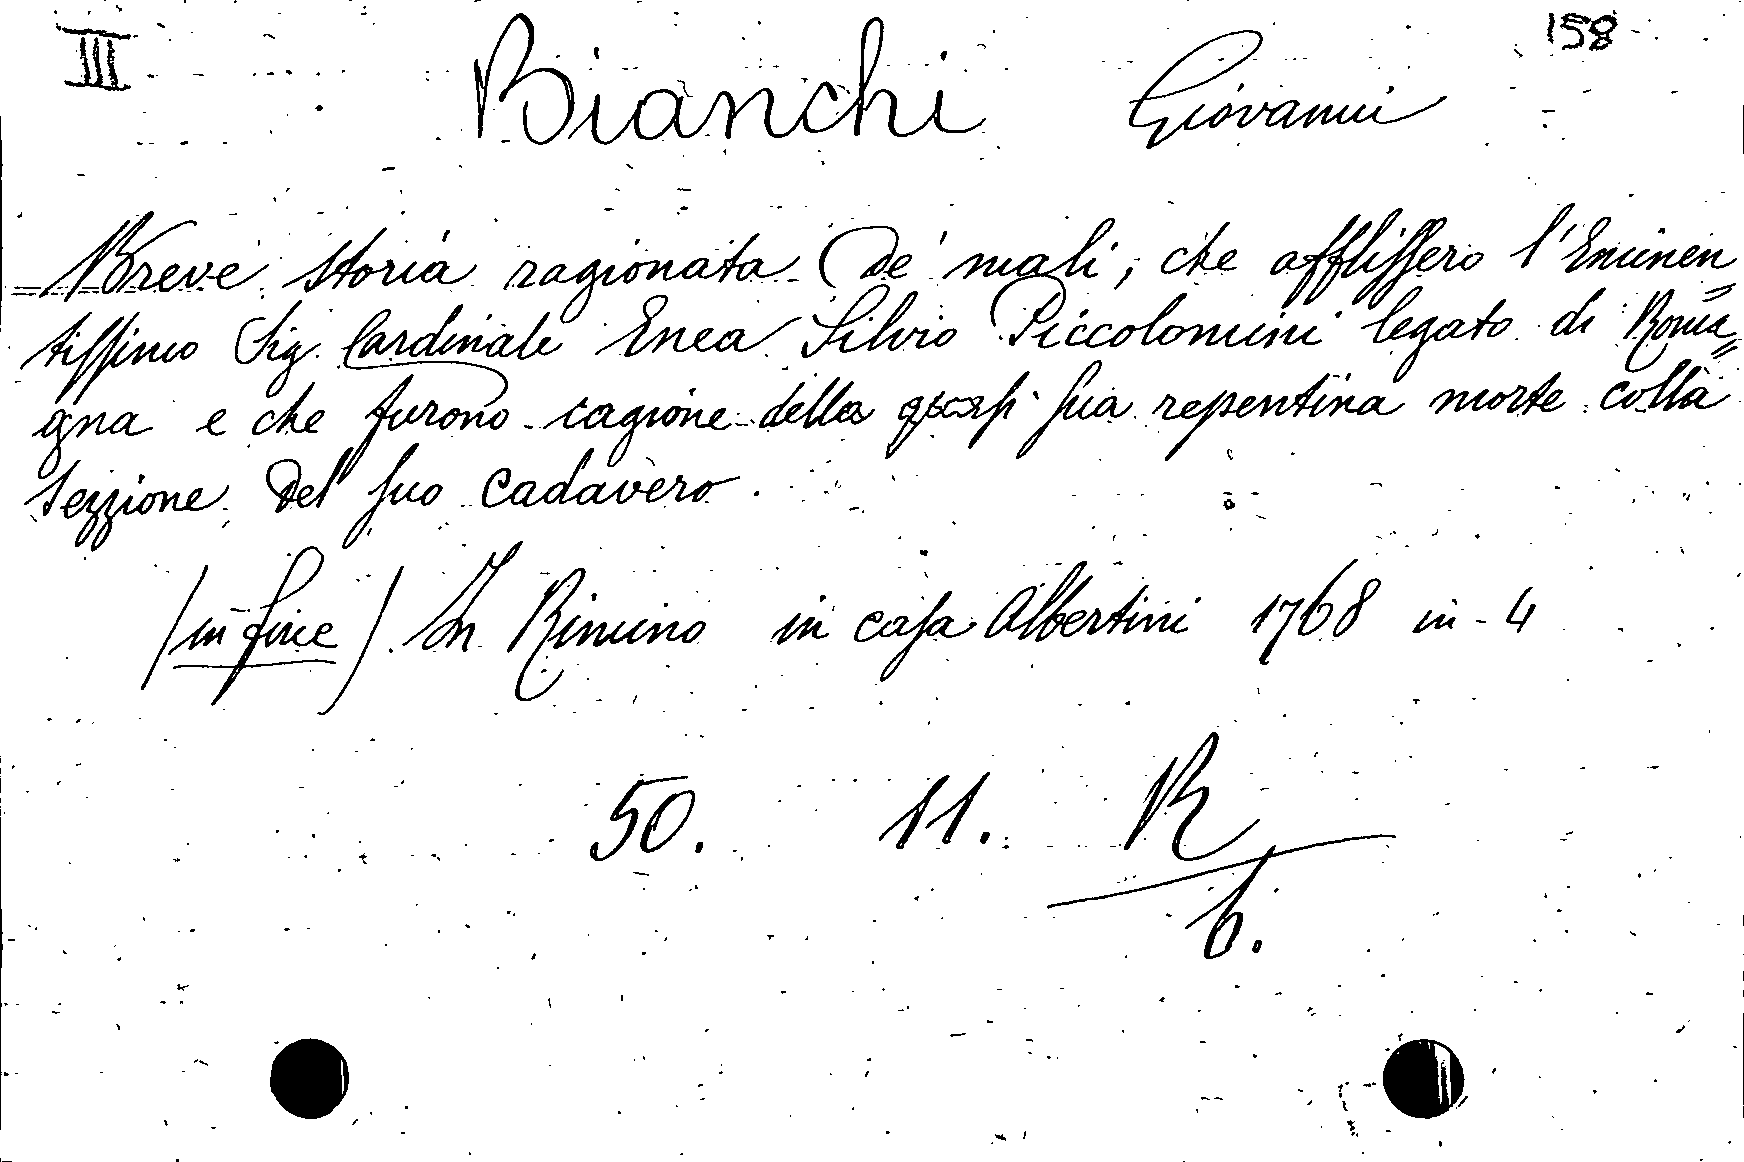 III
158
Bianchi Giovanni
Breve storia ragionata de' mali, che afflissero l'Eminen=
tissimo Sig. Cardinale Enea Silvio Piccolomini legato di Roma=
gna e che furono cagione della quasi sua repentina morte colla
sezzione del suo cadavero.
(in fine) In Rimino in casa Albertini 1768 in-4
50. 11. R
6.